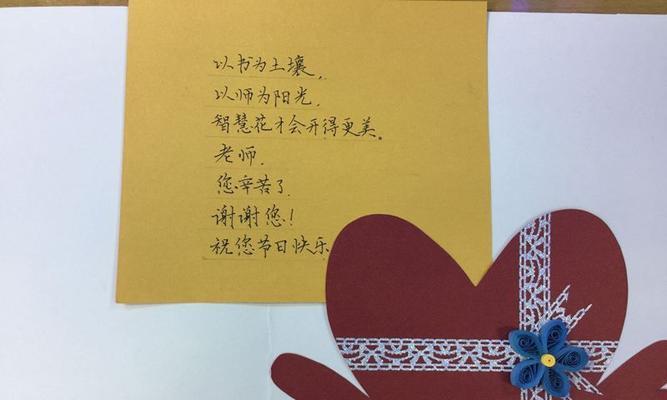 以书为土壤,
以师为阳光,
智慧花才会开得更美。
老师,
您辛苦了,
谢谢您!
祝您节日快乐